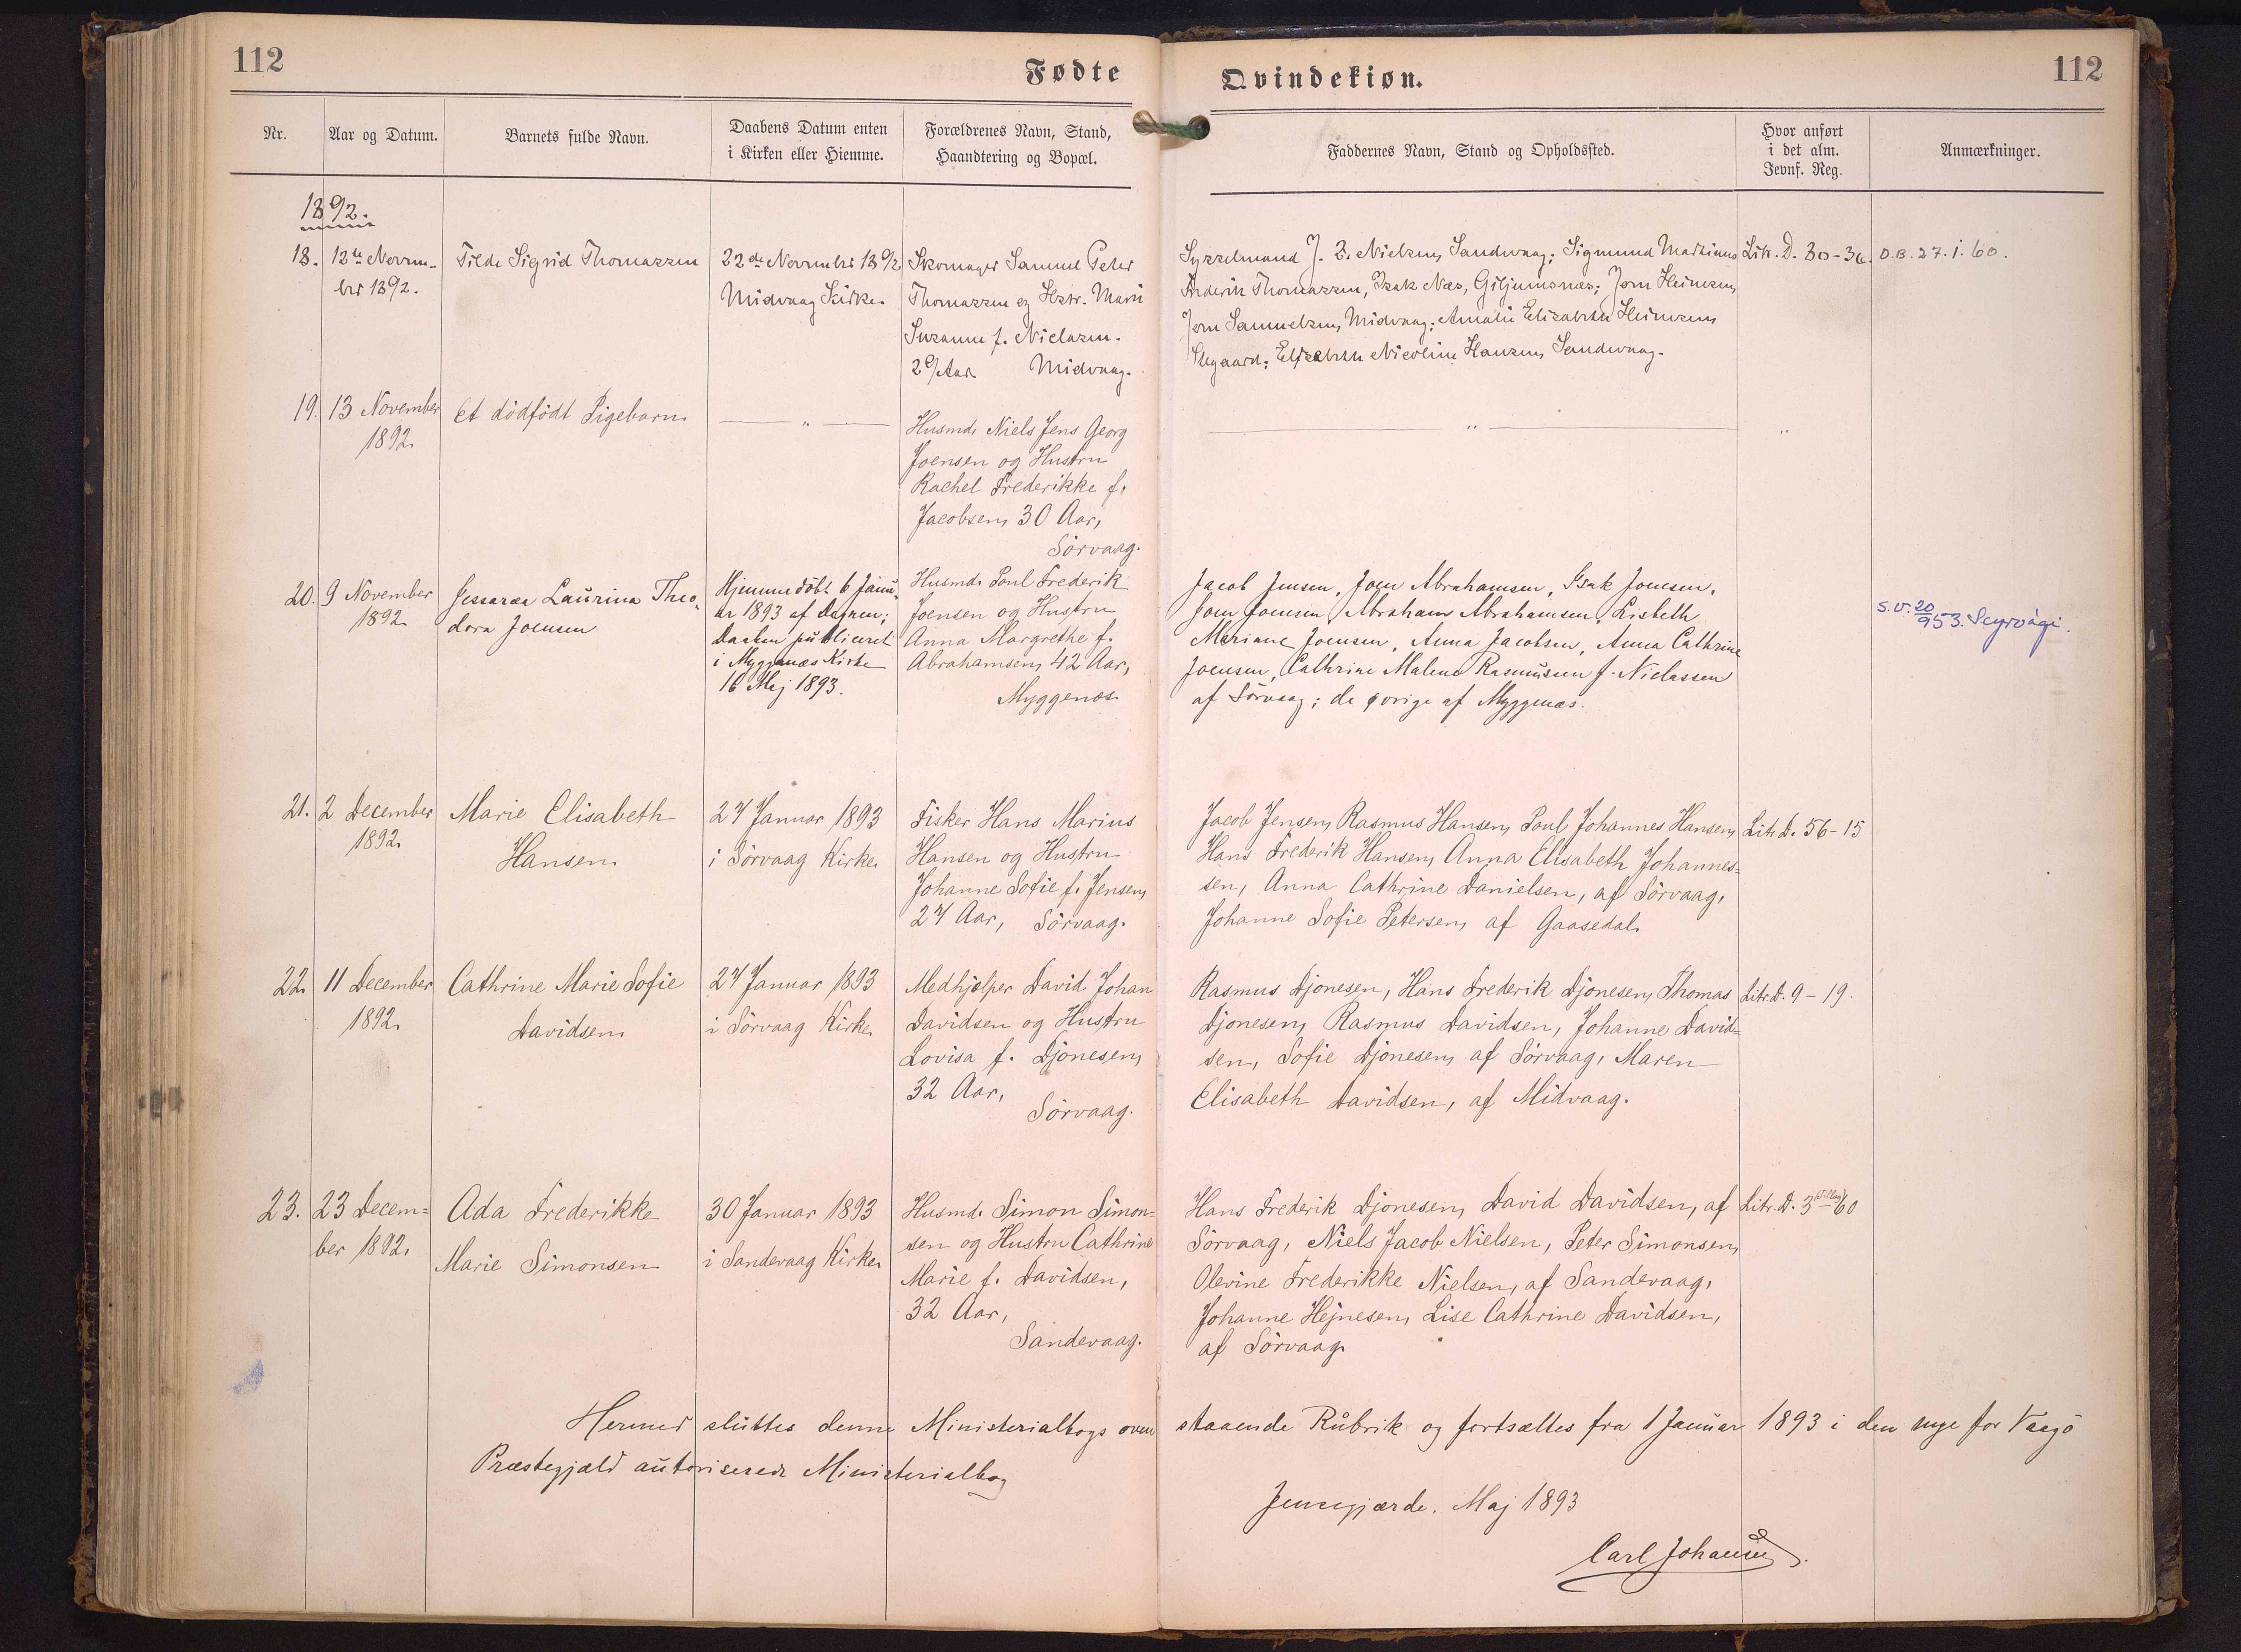 112
Fødte
Qvindekiøn.
112
Nr.
Aar og Datum.
Barnets fulde Navn.
Daabens Datum enten
i Kirken eller Hiemme.
Forældrenes Navn, Stand,
Haandtering og Bopæl.
Faddernes Navn, Stand og Opholdssted.
Hvor anført
i det alm.
Jevnf. Reg.
Anmærkninger.
1892.
18.
12te Novem-
ber 1892.
Tilde Sigrid Thomassen
22de November 1892
Midvaag Kirke.
Skomager Samuel Peter
Thomassen og Hstr. Mari
Susanne f. Niclasen.
29 Aar Midvaag.
Sysselmand J. Nielsen, Sandevaag; Sigmund Mathinus
Frederik Thomassen, Isak Næs, Giljumsnæs; Joen Heinesen,
Joen Samuelsen, Midvaag; Amalie Elisabeth Heinesen
Elisabeth Nicoline Hansen, Sandevaag.
Litr. D. 30-36.
D.B. 27.1.60.
19.
13 November
1892.
Et dödfödt Pigebarn.
— " —
Husmd. Niels Jens Georg
Joensen og Hustru
Rachel Frederikke f.
Jacobsen, 30 Aar,
Sörvaag.
— " —
"
20.
9 November
1892
Jessaræa Laurina Theo-
dora Joensen
Hjemmedöbt 6 Janu-
ar 1893 af Degnen;
Daaben publiceret
i Myggenæs Kirke
16 Mej 1893.
Husmd. Poul Frederik
Joensen og Hustru
Anna Margrethe f.
Abrahamsen, 42 Aar,
Myggenæs
Jacob Jensen, Joen Abrahamsen, Isak Joensen,
Joen Joensen, Abraham Abrahamsen, Lisbeth
Mariane Joensen, Anna Jacobsen, Anna Cathrine
Joensen, Cathrine Malene Rasmussen f. Niclassen
af Sörvaag; de övrige af Myggenæs.
S.V. 20/953. Seyrvági.
21.
2 December
1892.
Marie Elisabeth
Hansen.
24 Januar 1893
i Sörvaag Kirke.
Fisker Hans Marius
Hansen og Hustru
Johanne Sofie f. Jensen,
24 Aar, Sörvaag.
Jacob Jensen, Rasmus Hansen, Poul Johannes Hansen,
Hans Frederik Hansen, Anna Elisabeth Johannes=
sen, Anna Cathrine Danielsen, af Sörvaag,
Johanne Sofie Petersen, af Gaasedal.
Litr. D. 56-15
22.
11 December
1892.
Cathrine Marie Sofie
Davidsen.
24 Januar 1893
i Sörvaag Kirke.
Medhjælper David Johan
Davidsen og Hustru
Lovisa f. Djonesen,
32 Aar,
Sörvaag.
Rasmus Djonesen, Hans Frederik Djonesen, Thomas
Djonesen, Rasmus Davidsen, Johanne David=
sen, Sofie Djonesen, af Sörvaag, Maren
Elisabeth Davidsen, af Midvaag.
Litr. D. 9-19.
23.
23 Decem=
ber 1892.
Ada Frederikke
Marie Simonsen
30 Januar 1893
i Sandevaag Kirke.
Husmd. Simon Simon=
sen og Hustru Cathrine
Marie f. Davidsen,
32 Aar,
Sandevaag.
Hans Frederik Djonesen, David Davidsen, af
Sörvaag, Niels Jacob Nielsen, Peter Simonsen,
Olevine Frederikke Nielsen, af Sandevaag,
Johanne Hejnesen, Lise Cathrine Davidsen,
af Sörvaag.
Litr. D. 3 60
Hermed sluttes denne Ministerialbogs oven staaende Rubrik og fortsættes fra 1 Januar 1893 i den nye for Vaagö
Præstegjæld autoriserede Ministerialbog
Jensegjærde. Maj 1893
Carl Johansen.